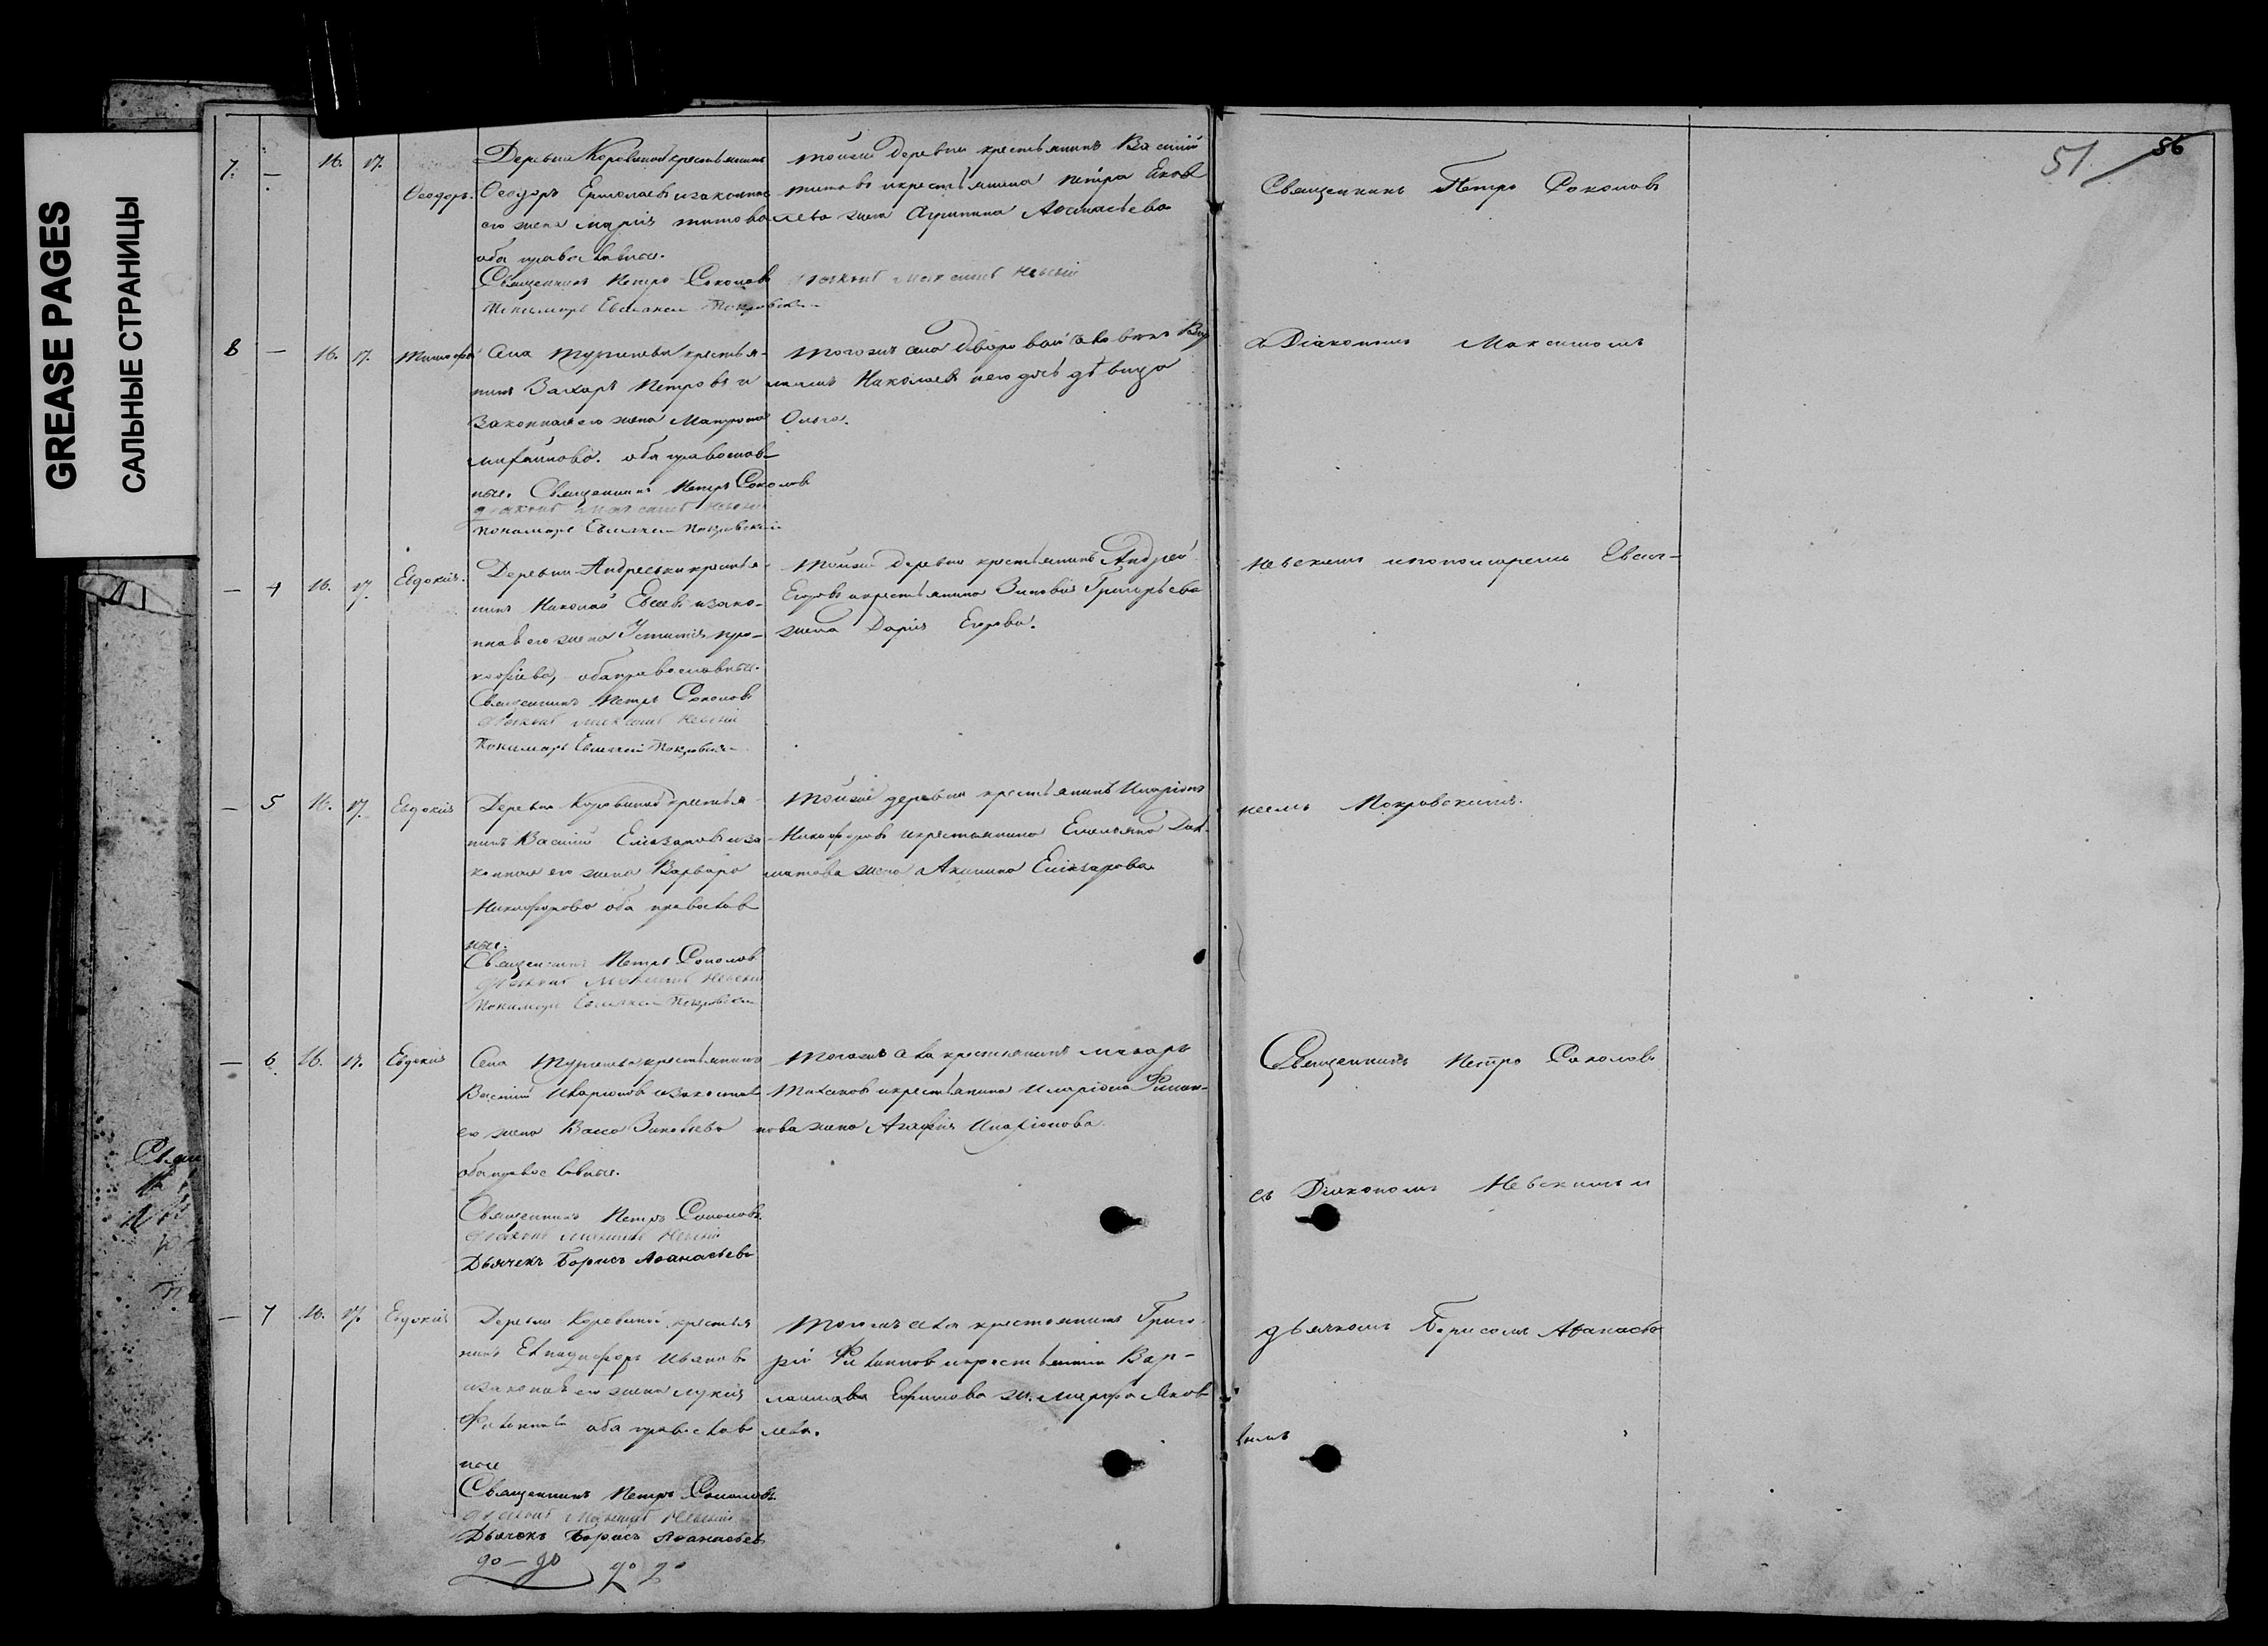 GREASE PAGES
САЛЬНЫЕ СТРАНИЦЫ
51 56
7. — 16. 17. Ѳеодоръ.
Деревни Коровиной крестьянинъ
Ѳеодоръ Ермолаевъ и законная
его жена Марія Титова
оба православные.
Священникъ Петръ Соколовъ
Діаконъ Максимъ Невскій
Пономарь Евсигней Покровскій
тойже деревни крестьянинъ Василій
Титовъ и крестьянина Петра Яков
лева жена Агрипина Аѳанасьева
Священникъ Петръ Соколовъ
8 — 16. 17. Тимофей
Села крестья-
нинъ Захаръ Петровъ и
законная его жена Матрона
оба православ-
ные. Священникъ Петръ Соколовъ
Діаконъ Максимъ Невскій
Пономарь Евсигней Покровскій
тогожъ села дворовый человекъ
Николаевъ и его дочь дѣвица
Ольга.
съ Діакономъ Максимомъ
— 4 16. 17. Евдокія.
Деревни Андреевки крестья-
нинъ Николай Евсеевъ и зако-
нная его жена Устинія Про-
кофіева, оба православные.
Священникъ Петръ Соколовъ
Діаконъ Максимъ Невскій
Пономарь Евсигней Покровскій
тойже деревни крестьянинъ Андрей
Егоровъ и крестьянина Зиновія Григорьева
жена Дарія Егорова.
Невскимъ и пономаремъ Евсиг-
— 5 16. 17. Евдокія
Деревни Коровиной крестья-
нинъ Василій Елиазаровъ и за-
конная его жена Варвара
Никифорова оба православ
ные.
Священникъ Петръ Соколовъ
Діаконъ Максимъ Невскій
Пономарь Евсигней Покровскій
тойже деревни крестьянинъ Иларіонъ
Никифоровъ и крестьянина Емельяна Дал-
матова жена Акилина Елиазарова
неемъ Покровскимъ.
— 6 16. 17. Евдокія
Села крестьянинъ
Василій Иларіоновъ и законная
его жена Васса Зиновьева
оба православные.
Священникъ Петръ Соколовъ
Діаконъ Максимъ Невскій
Дьячекъ Борисъ Аѳанасьевъ
тогожъ села крестьянинъ Макаръ
и крестьянина Иларіона Филип-
пова жена Агафія Иларіонова.
Священникъ Петръ Соколовъ
съ Діакономъ Невскимъ и
— 7 16. 17. Евдокія
Деревни Коровиной крестья
нинъ Елпидифоръ Ивановъ
и законная его жена Лукія
Филиппова оба православ
ные
Священникъ Петръ Соколовъ
Діаконъ Максимъ Невскій
Дьячекъ Борисъ Аѳанасьевъ
тогожъ села крестьянинъ Григо
рій Филипповъ и крестьянина Вар-
лама Ефимова ж. Марфа Яков
лева.
дьячкомъ Борисомъ Аѳанасье
вымъ